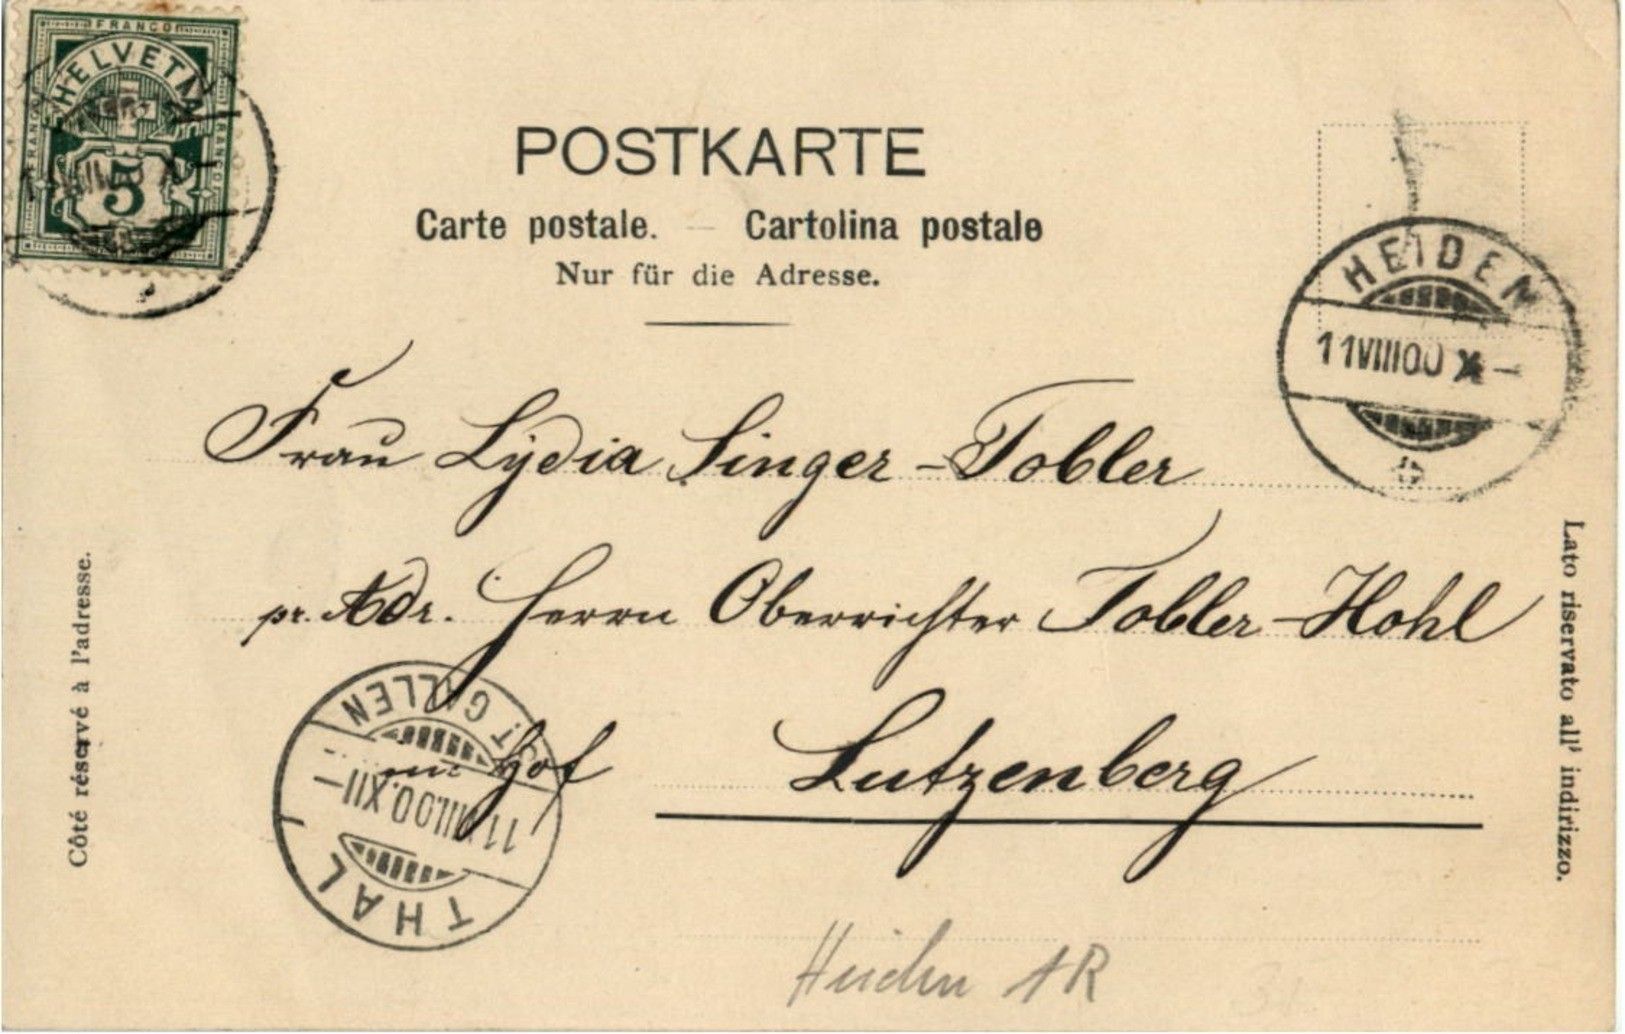 FRANCO
HELVETIA
FRANCO
5
POSTKARTE
Carte postale. — Cartolina postale
Nur für die Adresse.
HEIDEN
11 VIII 00 X –
Frau Lydia Singer-Tobler
pr. Adr. Herrn Oberrichter Tobler-Hohl
Hof Lutzenberg
Côté réservé à l'adresse.
Lato riservato all' indirizzo.
THAL
11 VIII.00.XII –
(ST GALLEN
Heiden AR